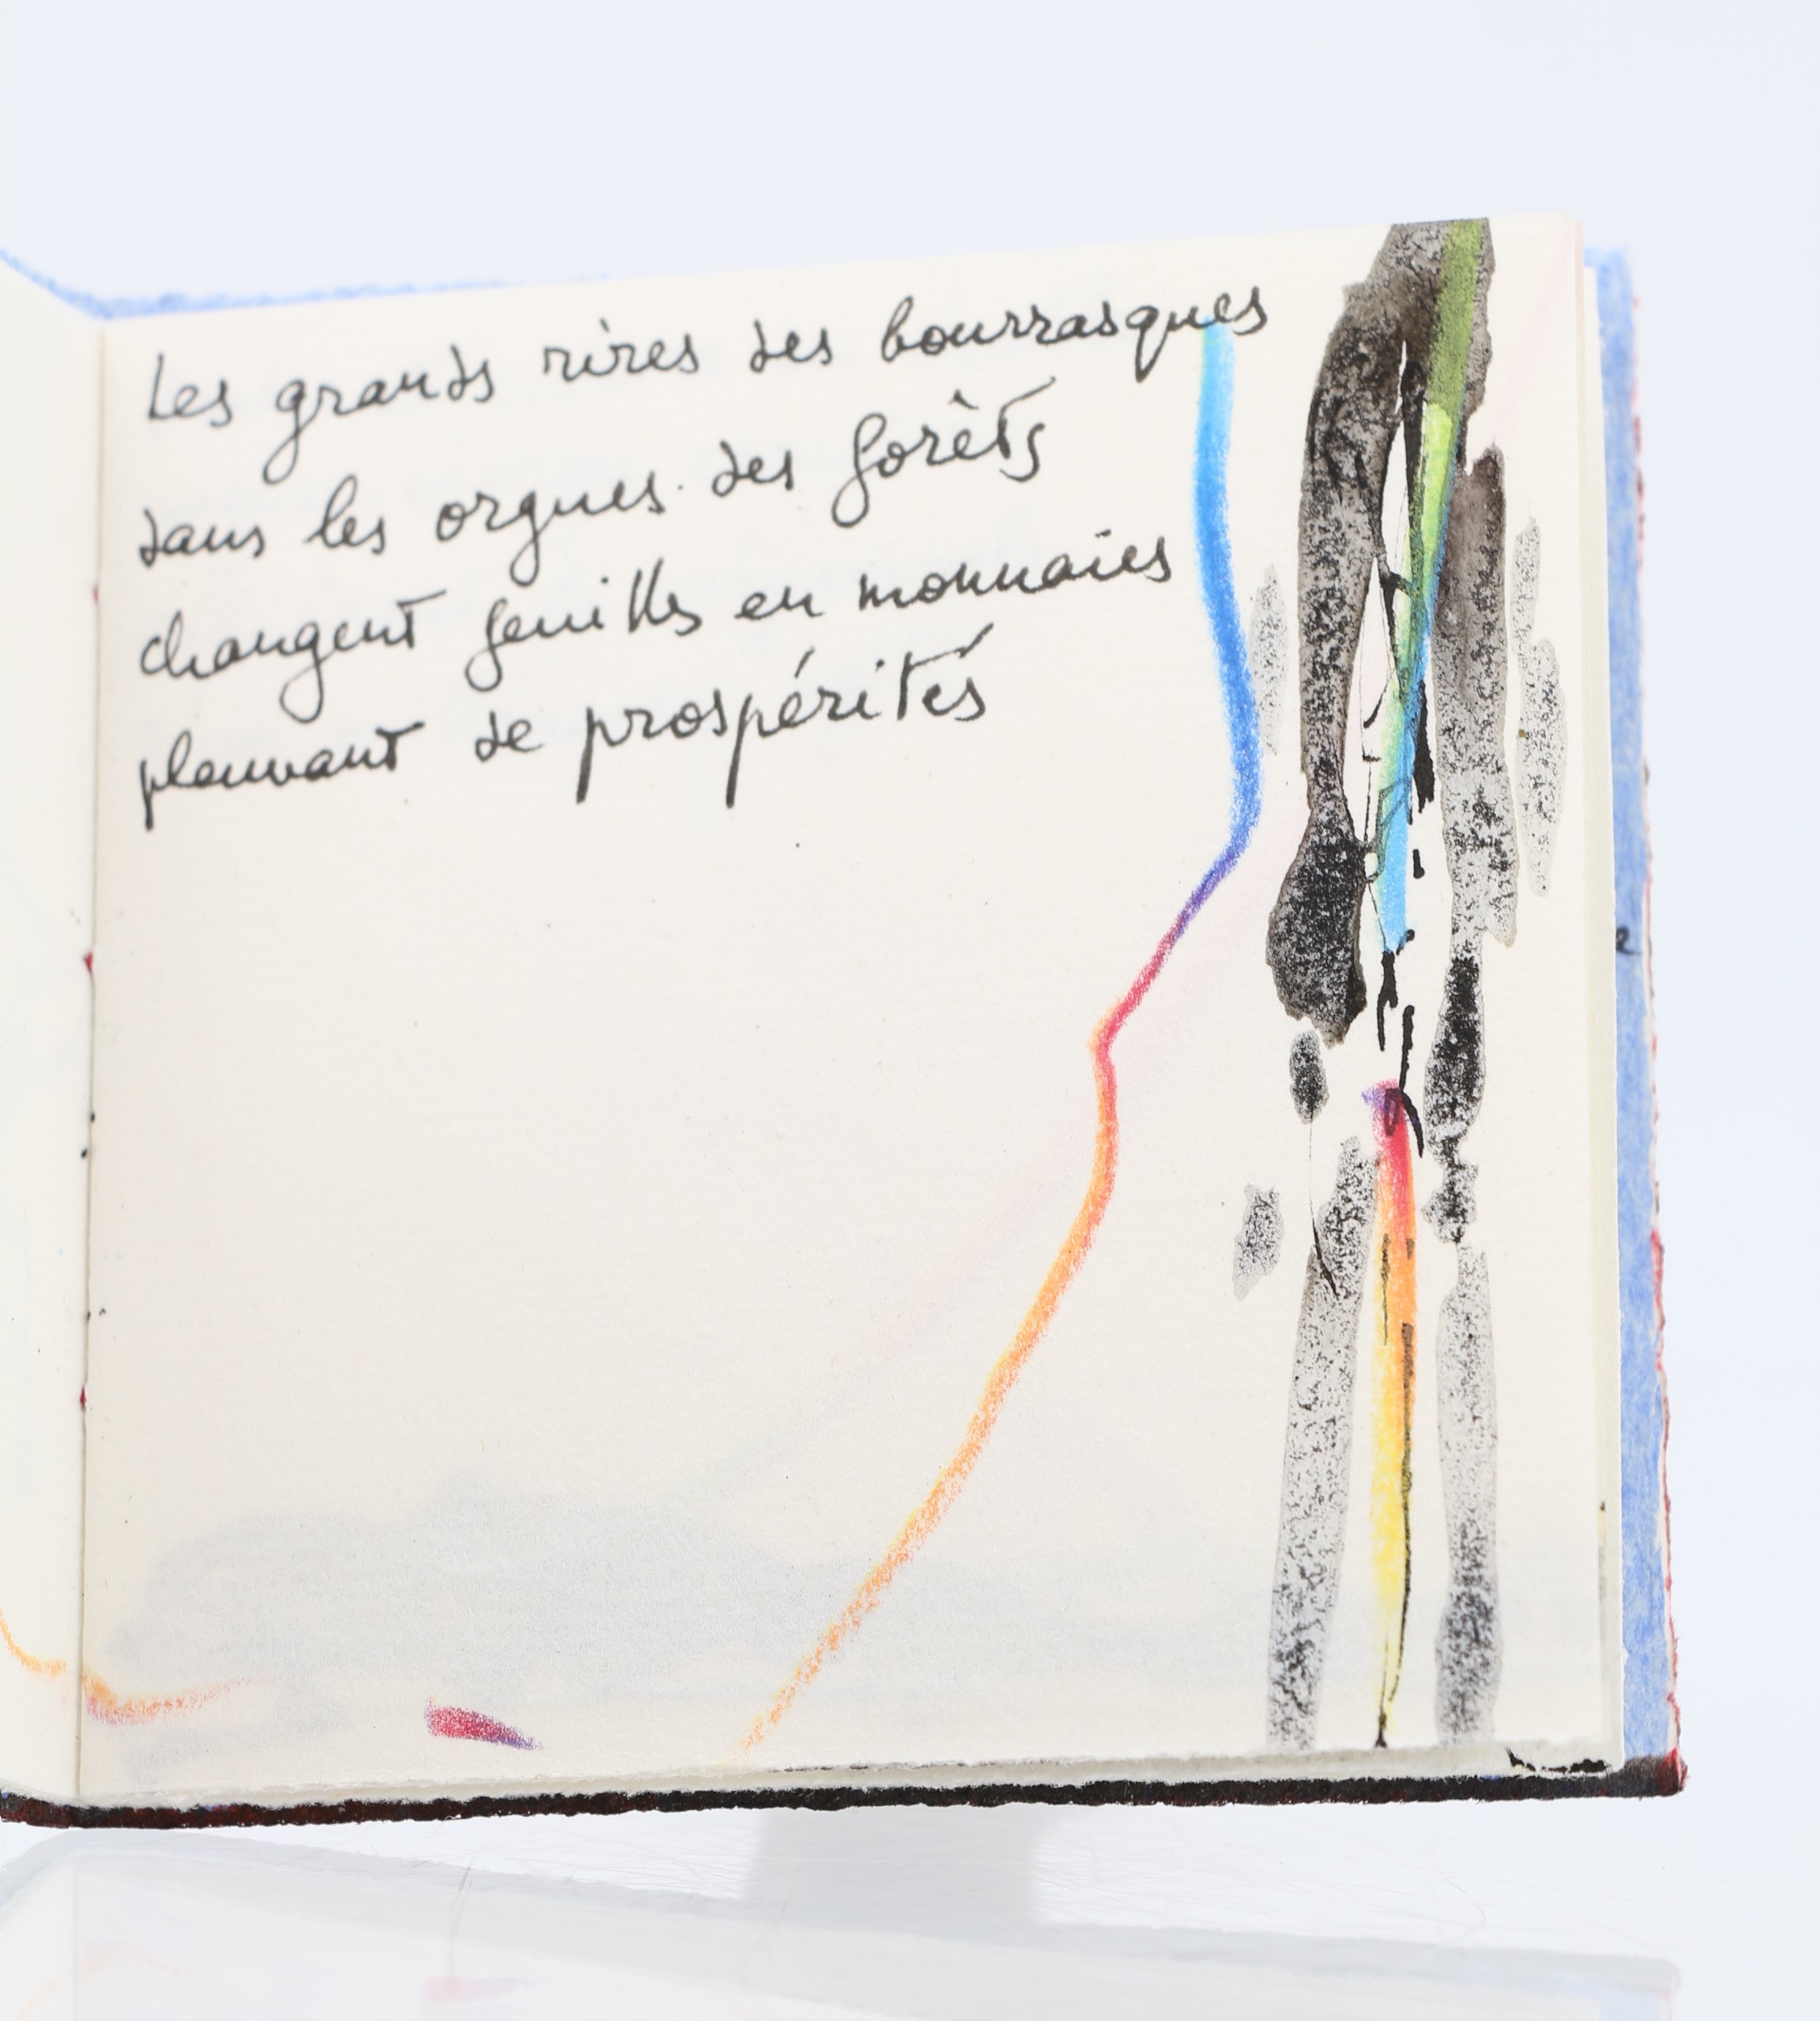 Les grands rires des bourrasques
dans les orgues des forêts
changent feuilles en monnaies
pleuvant de prospérités